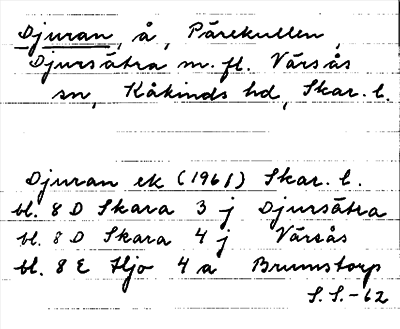 Djuran, å, Pärekullen,
Djursätra m. fl. Värsås
sn, Kåkinds hd, Skar. l.
Djuran ek (1961) Skar. l.
bl. 8 D Skara 3 j Djursätra
bl. 8 D Skara 4 j Värsås
bl. 8 E Hjo 4 a Brumstorp
S. S. -62